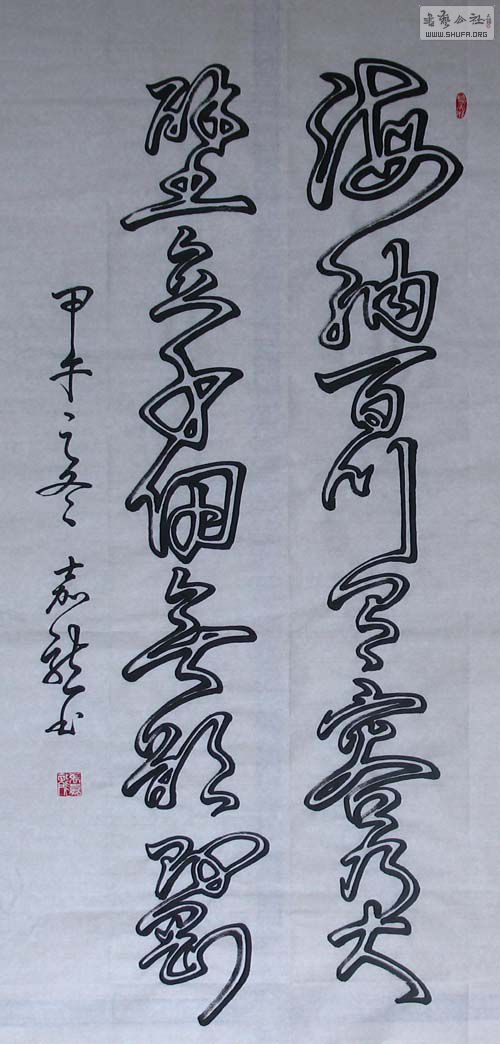 海納百川有容乃大
壁立千仞無欲則剛
甲午之冬 嘉龍书
书艺公社
WWW.SHUFA.ORG